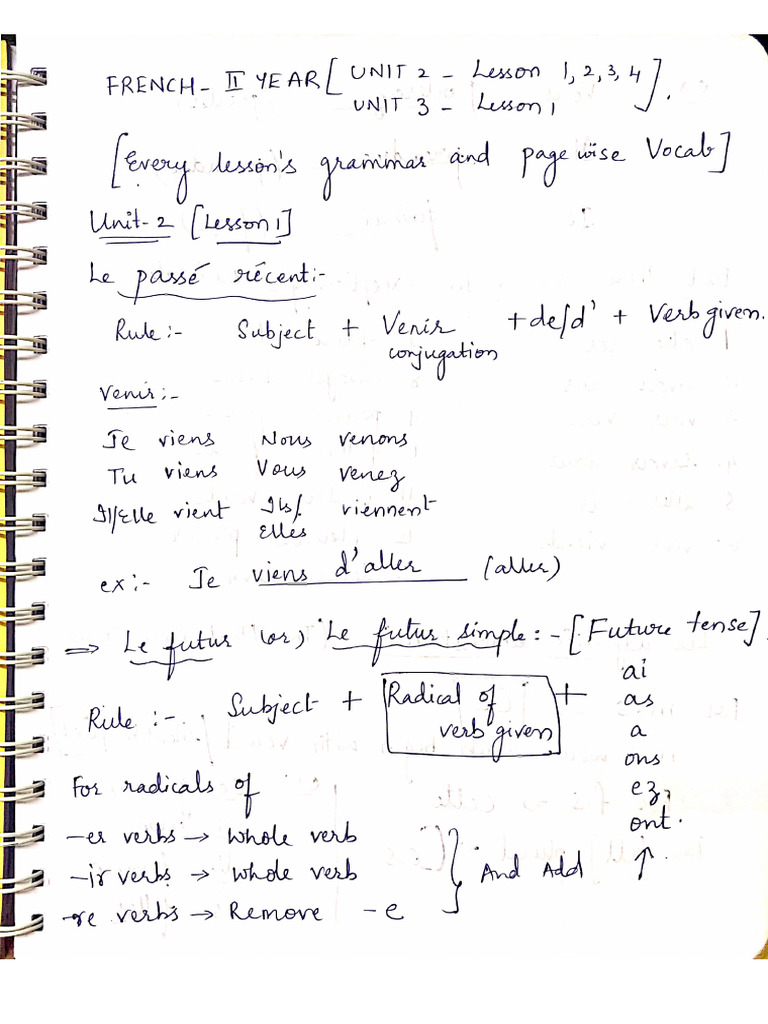 FRENCH - II YEAR [ UNIT 2 - Lesson 1, 2, 3, 4
UNIT 3 - Lesson 1 ].
[Every lesson's grammar and page wise Vocab]
Unit-2 [Lesson 1]
Le passé récent:-
Rule:- Subject + Venir + de/d' + Verb given.
conjugation
Venir:-
Je viens Nous venons
Tu viens Vous venez
Il/Elle vient Ils/ viennent
Elles
ex:- Je viens d'aller (aller)
⇒ Le futur (or) Le futur simple:- [Future tense].
Rule:- Subject + Radical of verb given +
ai
as
a
ons
ez,
ont.
For radicals of
-er verbs → Whole verb
-ir verbs → Whole verb } And Add ↑
-re verbs → Remove -e